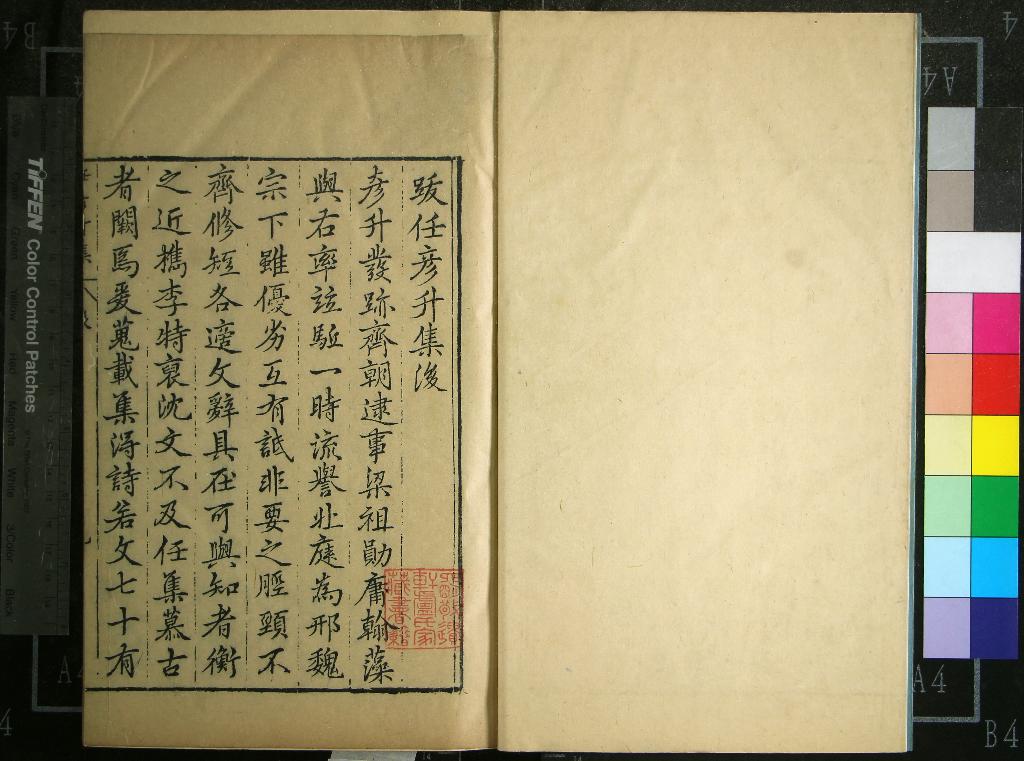 跋任彥升集後
彥升發跡齊朝逮事梁祖勛庸翰藻
與右率竝駈一時流譽北庭為邢魏
宗下雖優劣互有詆非要之脛頸不
齊修短各適文辭具在可與知者衡
之近攜李特裒沈文不及任集慕古
者闕焉爰蒐載集淂詩若文七十有
TIFFEN Color Control Patches
A4
B4